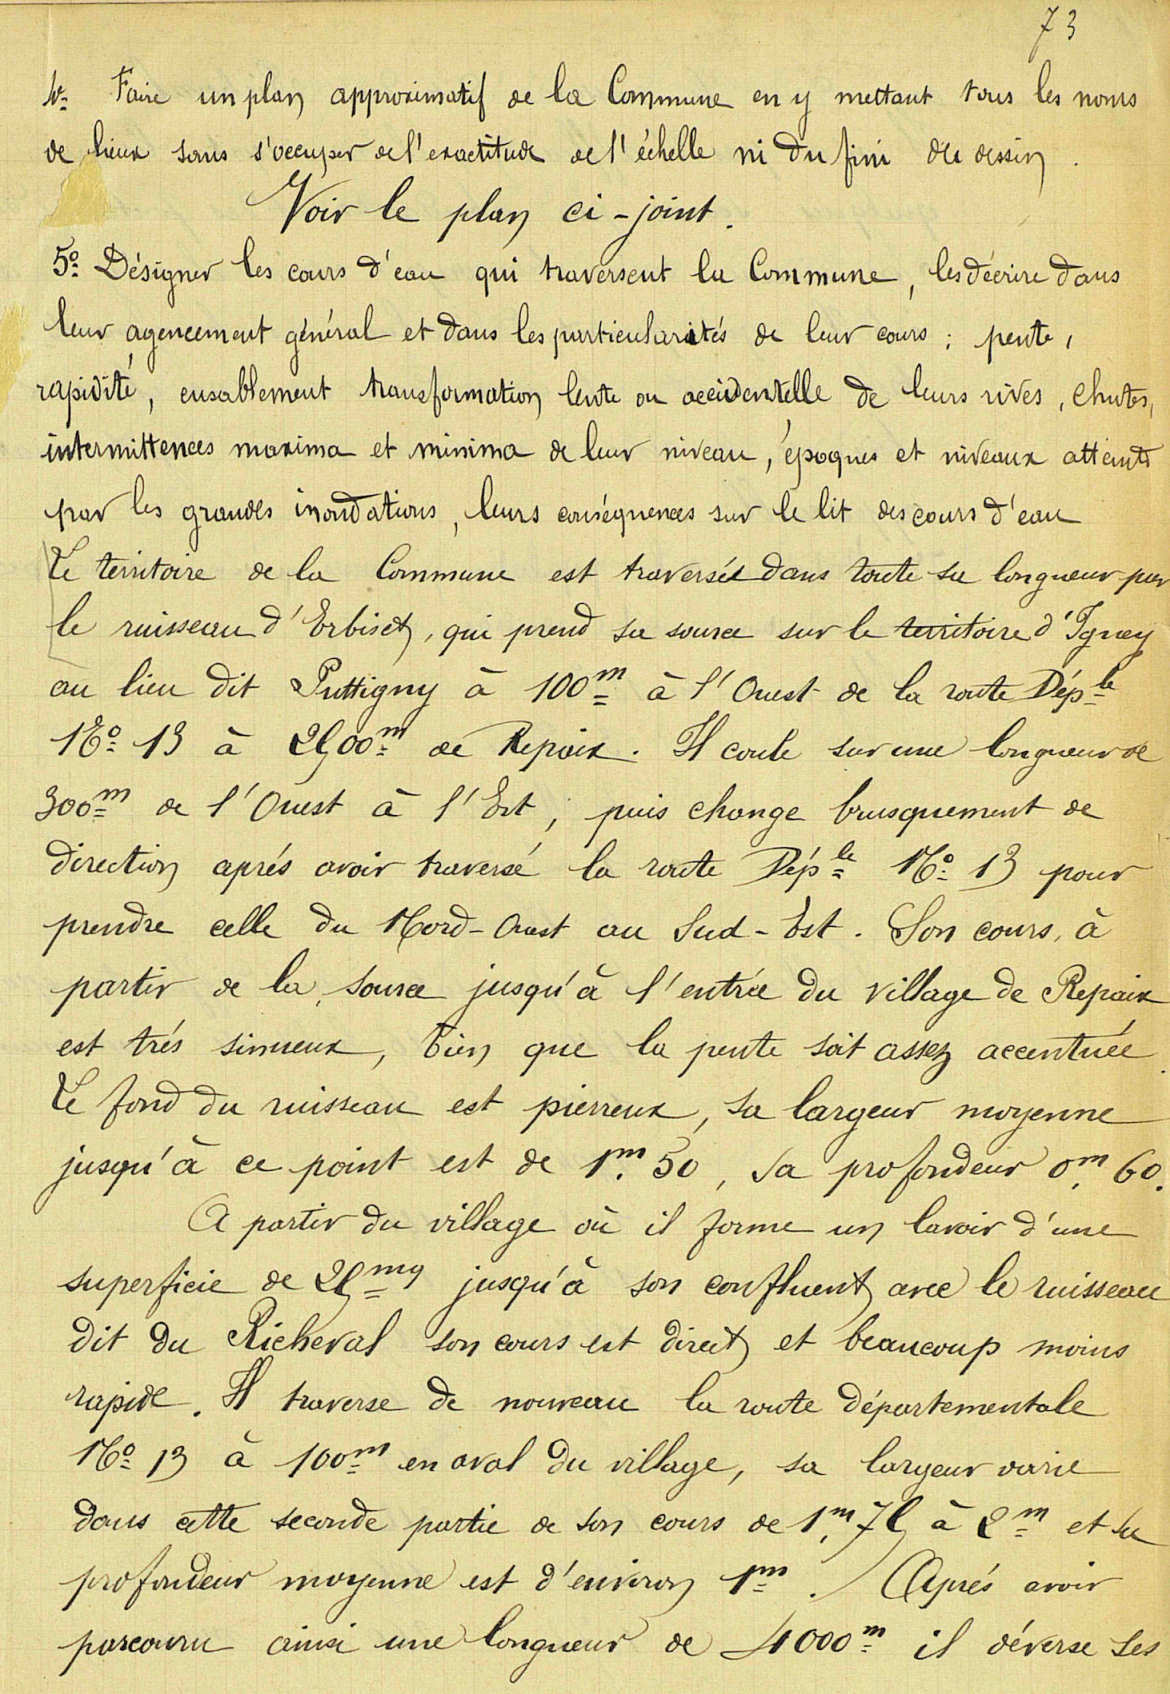 73
4º- Faire un plan approximatif de la Commune en y mettant tous les noms
de lieux sans s'occuper de l'exactitude de l'échelle ni du fini du dessin.
Voir le plan ci-joint.
5º- Désigner les cours d'eau qui traversent la Commune, les décrire dans
leur agencement général et dans les particularités de leur cours; pente,
rapidité, ensablement transformation lente ou accidentelle de leurs rives, chutes,
intermittences maxima et minima de leur niveau, époques et niveaux atteints
par les grandes inondations, leurs conséquences sur le lit des cours d'eau
Le territoire de la Commune est traversé dans toute sa longueur par
le ruisseau d'Erbiset, qui prend sa source sur le territoire d'Igney
au lieu dit Puttigny à 100m à l'Ouest de la route Déple
Nº 13 à 2500m de Repaix. Il coule sur une longueur de
300m de l'Ouest à l'Est, puis change brusquement de
direction aprés avoir traversé la route Déple Nº 13 pour
prendre celle du Nord-Ouest au Sud-Est. Son cours, à
partir de la source jusqu'à l'entrée du village de Repaix
est trés sinueux, bien que la pente soit assez accentuée.
Le fond du ruisseau est pierreux, sa largeur moyenne
jusqu'à ce point est de 1m.50, sa profondeur 0m,60.
A partir du village où il forme un lavoir d'une
superficie de 25mq jusqu'à son confluent avec le ruisseau
dit du Richeval son cours est direct et beaucoup moins
rapide. Il traverse de nouveau la route départementale
Nº 13 à 100m en aval du village, sa largeur varie
dans cette seconde partie de son cours de 1m,75 à 2m et sa
profondeur moyenne est d'environ 1m. Aprés avoir
parcouru ainsi une longueur de 4000m il déverse ses